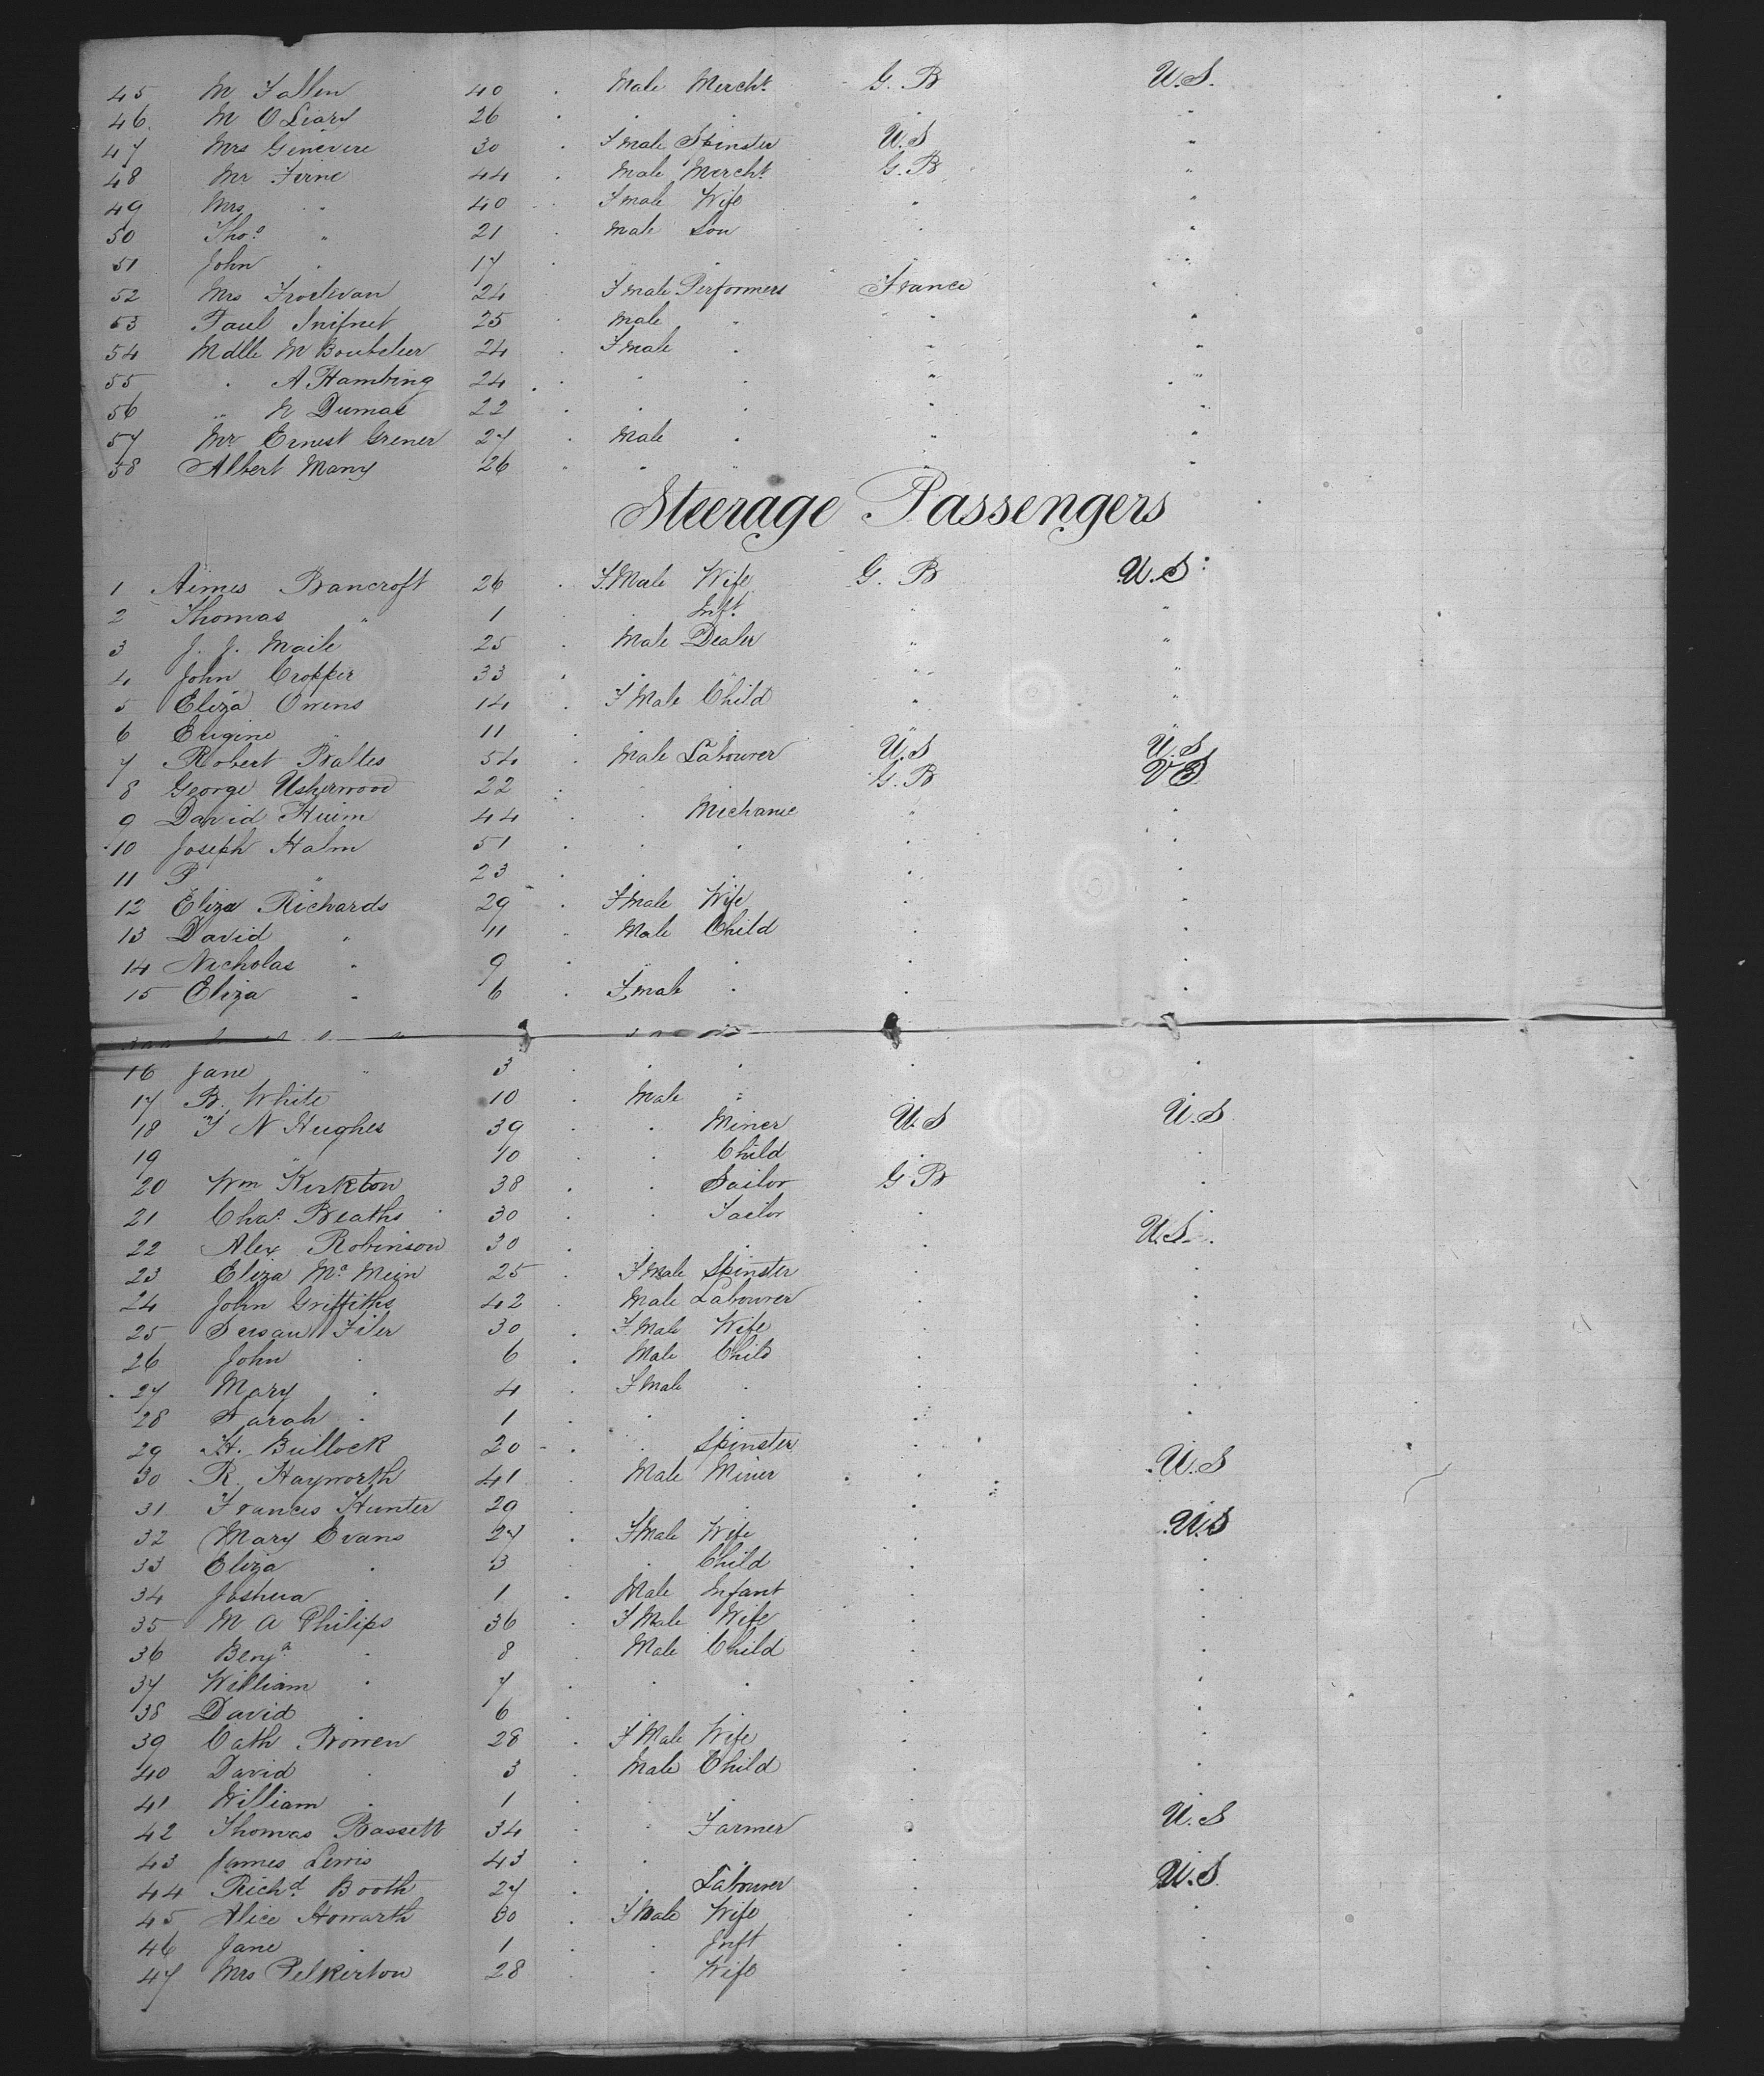 45 M Fallen 40 . Male Mercht G. B U.S.
46. M O Liary 26 . . . . "
47 Mrs Genevere 30 . Fmale Spinster U.S "
48 Mr Firne 44 . Male Mercht G. B "
49 Mrs " 40 . Fmale Wife " "
50 Thos " 21 . Male Son " "
51 John " 17 . " " " "
52 Mrs 24 Fmale Performers France "
53 Paul 25 . Male " " "
54 Mdlle M 24 . Fmale " " "
55 " A Hambing 24 . . . " "
56 " N Dumas 22 . . . " "
57 Mr Ernest Grener 27 . Male " " "
58 Albert Many 26 " " " " "
Steerage Passengers
1 Aimes Bancroft 26 . F.Male Wife G. B U.S.
2 Thomas " 1 . . Inft " "
3 J. J. Maile 25 . Male Dealer " "
4 John Cropper 33 . . " " "
5 Eliza Owens 14 . F Male Child " "
6 Eugine " 11 . . . " "
7 Robert Baltes 54 . Male Labourer U.S U.S
8 George Usherwood 22 . . . G. B U S
9 David Huim 44 . . Michanic " .
10 Joseph Halm 51 . . . . .
11 P " 23 . . . . .
12 Eliza Richards 29 . Fmale Wife . .
13 David " 11 . Male Child . .
14 Nicholas " 9 . . . . .
15 Eliza " 6 . Fmale . . .
16 Jane " 3 . . . . .
17 B. White 10 . Male " . .
18 T N Hughes 39 . . Miner U.S U.S
19 " 10 . . Child . .
20 Wm Kirkton 38 . . Sailor G B .
21 Chas Beaths 30 . . Tailor . .
22 Alex Robinson 30 . . . . U.S.
23 Eliza Mc Mein 25 . F Male Spinster . .
24 John Griffiths 42 . Male Labourer . .
25 Susan Filer 30 . F Male Wife . .
26 John . 6 . Male Child . .
27 Mary . 4 . F Male . . .
28 Sarah . 1 . . . . .
29 H. Bullock 20 . . Spinster . .
30 R. Hayworth 41 . Male Miner . U.S
31 Frances Hunter 29 . . . . .
32 Mary Evans 27 . FMale Wife . U.S
33 Eliza . 3 . . Child . .
34 Joshua . 1 . Male Infant . .
35 M A Philips 36 . F Male Wife . .
36 Benja . 8 . Male Child . .
37 William . 7 . . . . .
38 David . 6 . . . . .
39 Cath Bowen 28 . F Male Wife . .
40 David . 3 . Male Child . .
41 William . 1 . . . . .
42 Thomas Bassett 34 . . Farmer . U.S
43 James Lewis 43 . . . . .
44 Richd Booth 27 . . Labourer . U.S
45 Alice Howarth 30 . F Male Wife . .
46 Jane . 1 . . Inft . .
47 Mrs Pelkerton 28 . . Wife . .